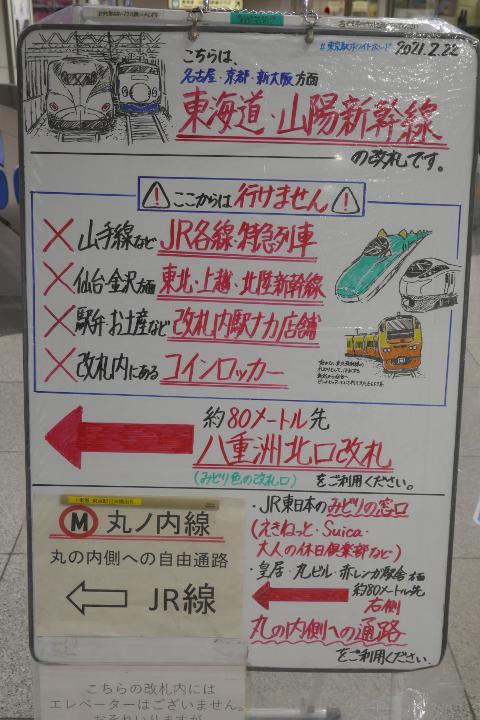 #東京駅ホワイトボード 2021.2.22
こちらは、
名古屋・京都・新大阪 方面
東海道・山陽新幹線
の改札です。
ここからは行けません
山手線など JR各線・特急列車
仙台・金沢方面 東北・上越・北陸新幹線
駅弁・お土産など 改札内駅ナカ店舗
改札内にある コインロッカー
約80メートル先
八重洲北口改札
(みどり色の改札口) をご利用ください。
M 丸ノ内線
丸の内側への自由通路
JR線
・JR東日本のみどりの窓口
(えきねっと・Suica・
大人の休日倶楽部など)
・皇居・丸ビル・赤レンガ駅舎方面
約80メートル先
右側
丸の内側への通路
をご利用ください。
こちらの改札内には
エレベーターはございません。
おそれいりますが